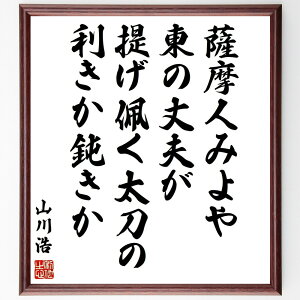 薩摩人みよや
東の丈夫が
提げ佩く太刀の
利きか鈍きか
山川浩